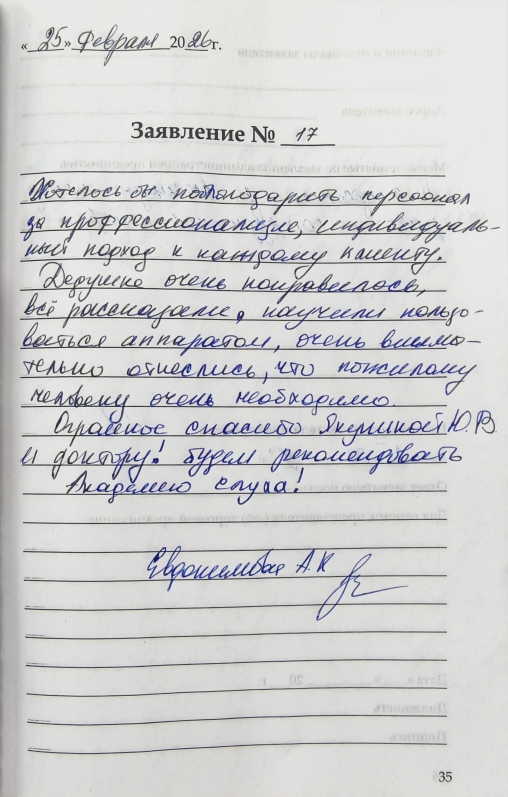 «25» Февраля 2026 г.
Заявление № 17
Хотелось бы поблагодарить персонал
за проффессионализм, индивидуаль-
ный подход к каждому клиенту.
Дедушке очень понравилось,
всё рассказали, научили пользо-
ваться аппаратом, очень внима-
тельно отнеслись, что пожилому
человеку очень необходимо.
Огромное спасибо Якушиной Ю.В
и доктору! Будем рекомендовать
Академию слуха!
Евдокимова А.К
35